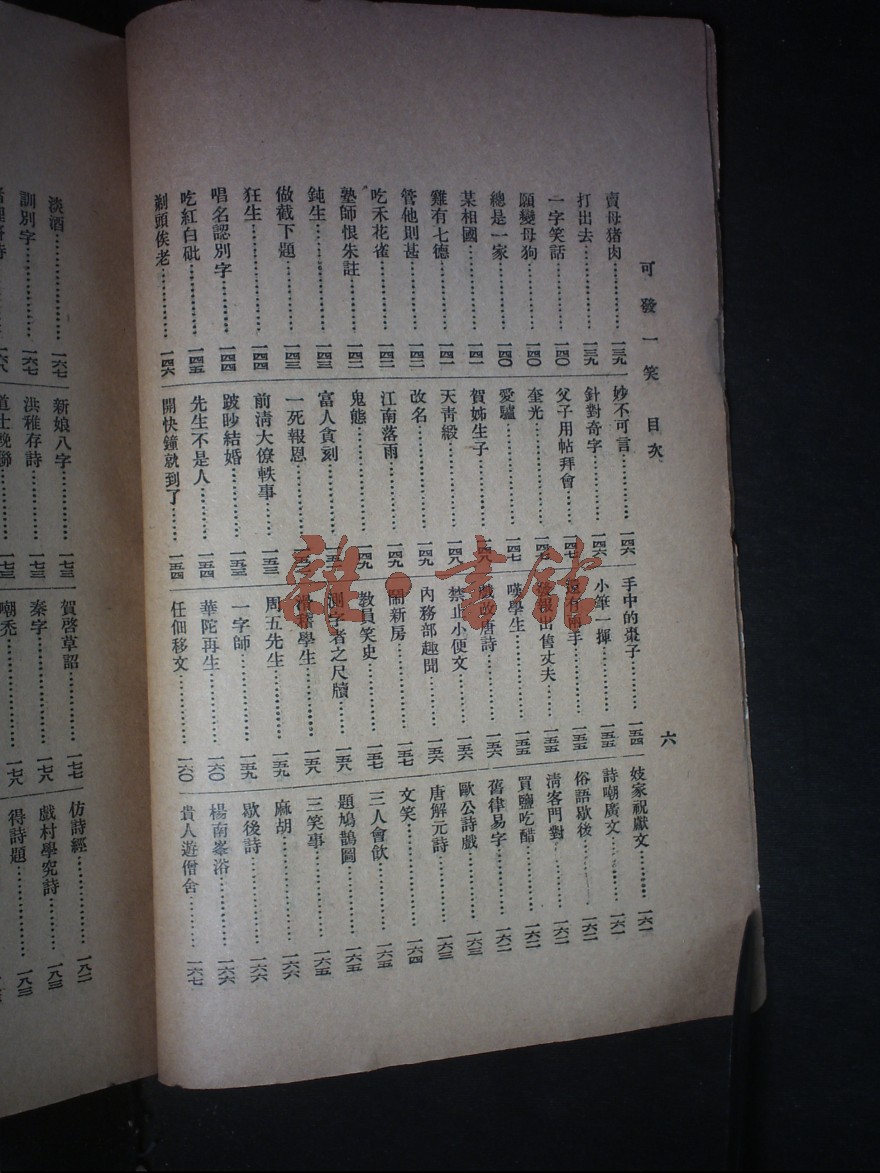 可發一笑 目次
六
賣母猪肉…………一三九
打出去…………一三九
一字笑話…………一四〇
願變母狗…………一四〇
總是一家…………一四〇
某相國…………一四一
雞有七德…………一四一
管他則甚…………一四二
吃禾花雀…………一四二
塾師恨朱註…………一四二
鈍生…………一四三
做截下題…………一四三
狂生…………一四四
唱名認別字…………一四四
吃紅白砒…………一四五
剃頭俟老…………一四六
妙不可言…………一四六
針對奇字…………一四六
父子用帖拜會…………一四七
奎光…………一四七
愛驢…………一四七
賀姊生子…………一四八
天青緞…………一四八
改名…………一四九
江南落雨…………一四九
鬼態…………一四九
富人貪刻
一死報恩
前淸大僚軼事…………一五三
跛眇結婚…………一五三
先生不是人…………一五四
開快鐘就到了…………一五四
手中的棗子…………一五四
小筆一揮…………一五五
還有兩手…………一五五
登報出售丈夫…………一五五
嘆學生…………一五五
戲改唐詩…………一五六
禁止小便文…………一五六
內務部趣聞…………一五六
鬧新房…………一五七
敎員笑史…………一五七
測字者之尺牘…………一五八
滑稽學生…………一五八
周五先生…………一五九
一字師…………一五九
華陀再生…………一六〇
任佃移文…………一六〇
妓家祝獻文…………一六一
詩嘲廣文…………一六一
俗語歇後…………一六二
淸客門對…………一六二
買鹽吃醋…………一六二
舊律易字…………一六二
歐公詩戲…………一六三
唐解元詩…………一六三
文笑…………一六四
三人會飲…………一六五
題鳩鵲圖…………一六五
三笑事…………一六五
麻胡…………一六六
歇後詩…………一六六
楊南峯浴…………一六六
貴人遊僧舍…………一六七
淡酒…………一六七
訓別字…………一六七
新娘八字…………一七三
洪稚存詩…………一七三
道士輓聯…………一七三
賀啓草詔…………一七七
秦字…………一七八
嘲禿…………一七八
仿詩經…………一八二
戲村學究詩…………一八三
得詩題…………一八三
雜·書館